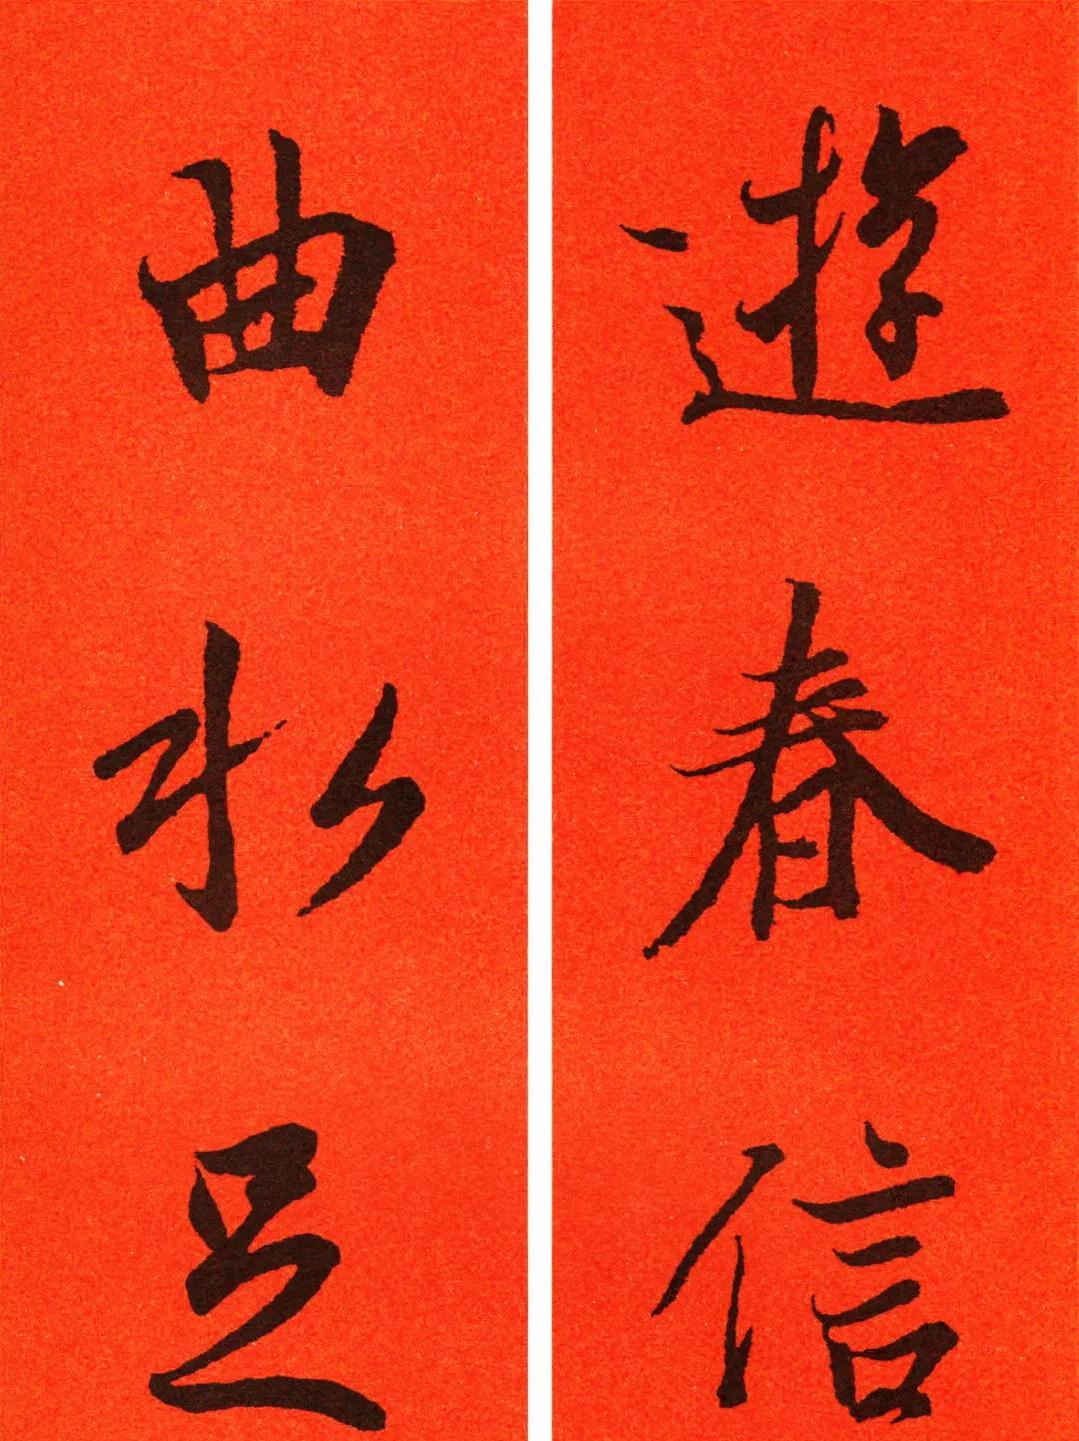 遊春信
曲水足